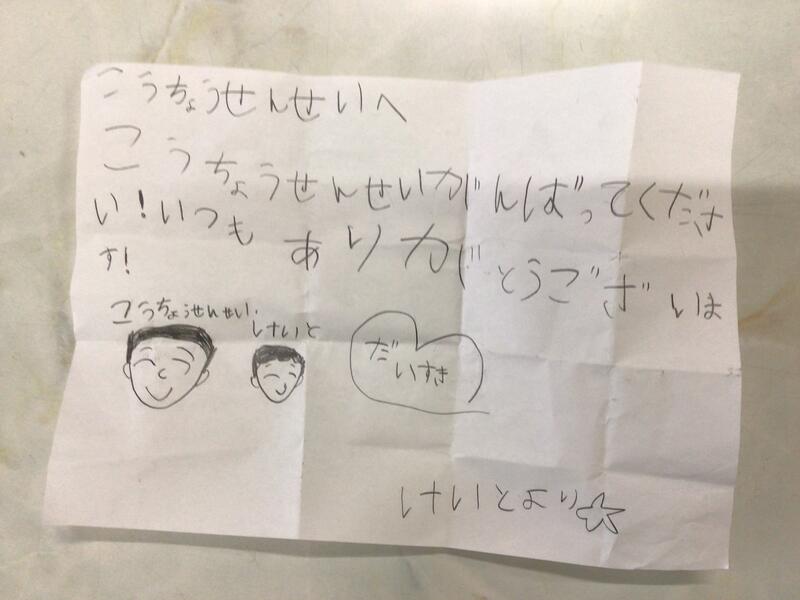 こうちょうせんせいへ
こうちょうせんせいがんばってくださ
い！いつもありがとうございま
す！
こうちょうせんせい
けいと
だいすき
けいとより☆